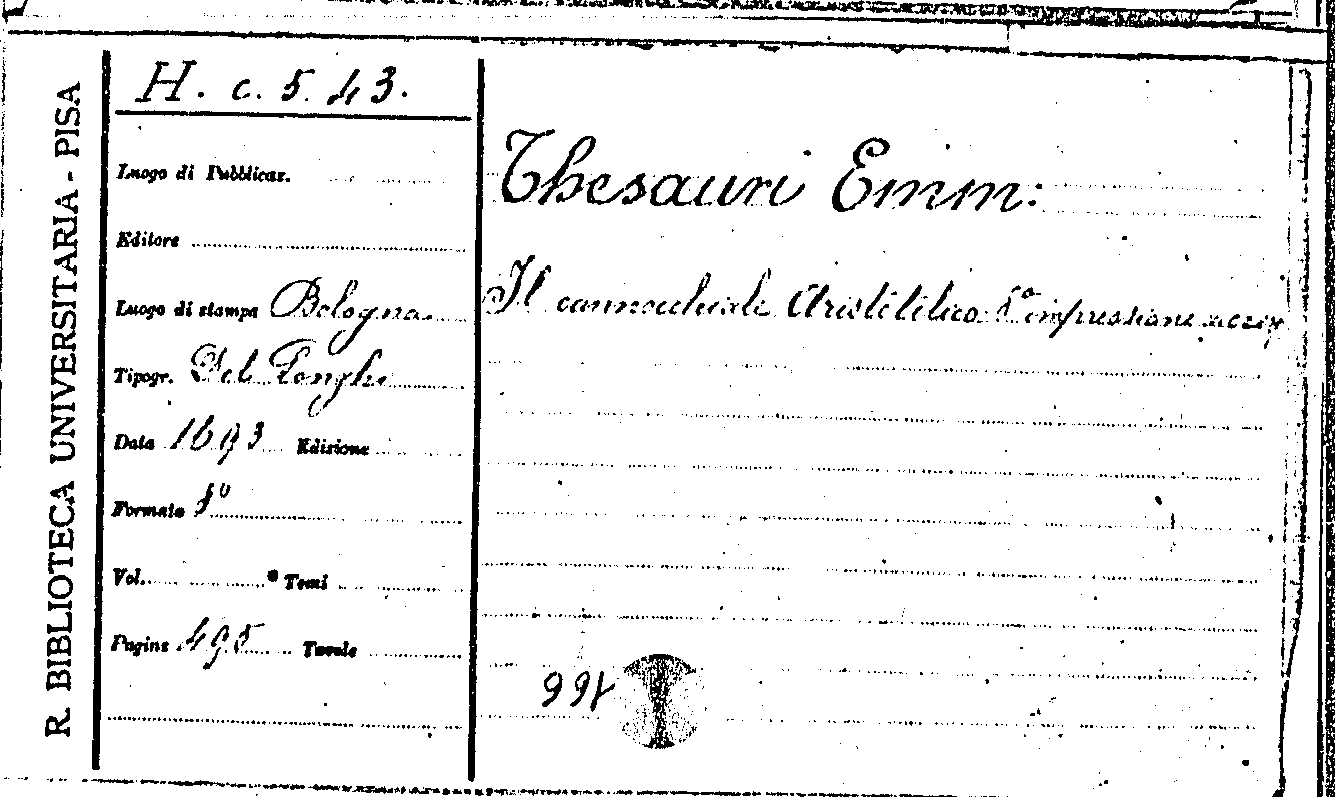 R. BIBLIOTECA UNIVERSITARIA - PISA
H. c. 5. 43.
Luogo di Pubblicaz.
Editore
Luogo di stampa Bologna
Tipogr. Del Longhi
Data 1693 Edizione
Formato
Vol. Tomi
Pagine 495 Tavole
Thesauri Emm:
Il cannochiale Aristotelico impressione